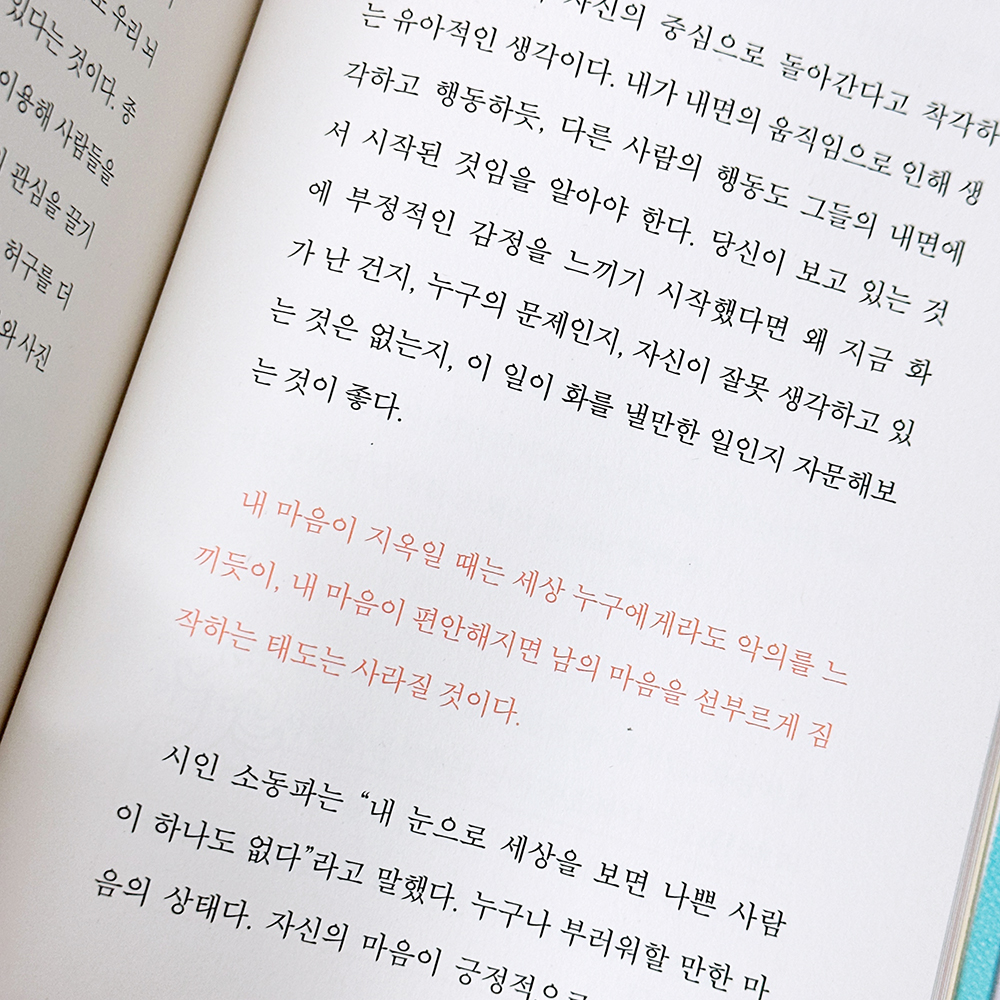 로 우리 뇌
있다는 것이다. 종
이용해 사람들을
관심을 끌기
허구를 더
와 사진
자신의 중심으로 돌아간다고 착각하
는 유아적인 생각이다. 내가 내면의 움직임으로 인해 생
각하고 행동하듯, 다른 사람의 행동도 그들의 내면에
서 시작된 것임을 알아야 한다. 당신이 보고 있는 것
에 부정적인 감정을 느끼기 시작했다면 왜 지금 화
가 난 건지, 누구의 문제인지, 자신이 잘못 생각하고 있
는 것은 없는지, 이 일이 화를 낼만한 일인지 자문해보
는 것이 좋다.
내 마음이 지옥일 때는 세상 누구에게라도 악의를 느
끼듯이, 내 마음이 편안해지면 남의 마음을 섣부르게 짐
작하는 태도는 사라질 것이다.
시인 소동파는 “내 눈으로 세상을 보면 나쁜 사람
이 하나도 없다”라고 말했다. 누구나 부러워할 만한 마
음의 상태다. 자신의 마음이 긍정적으로